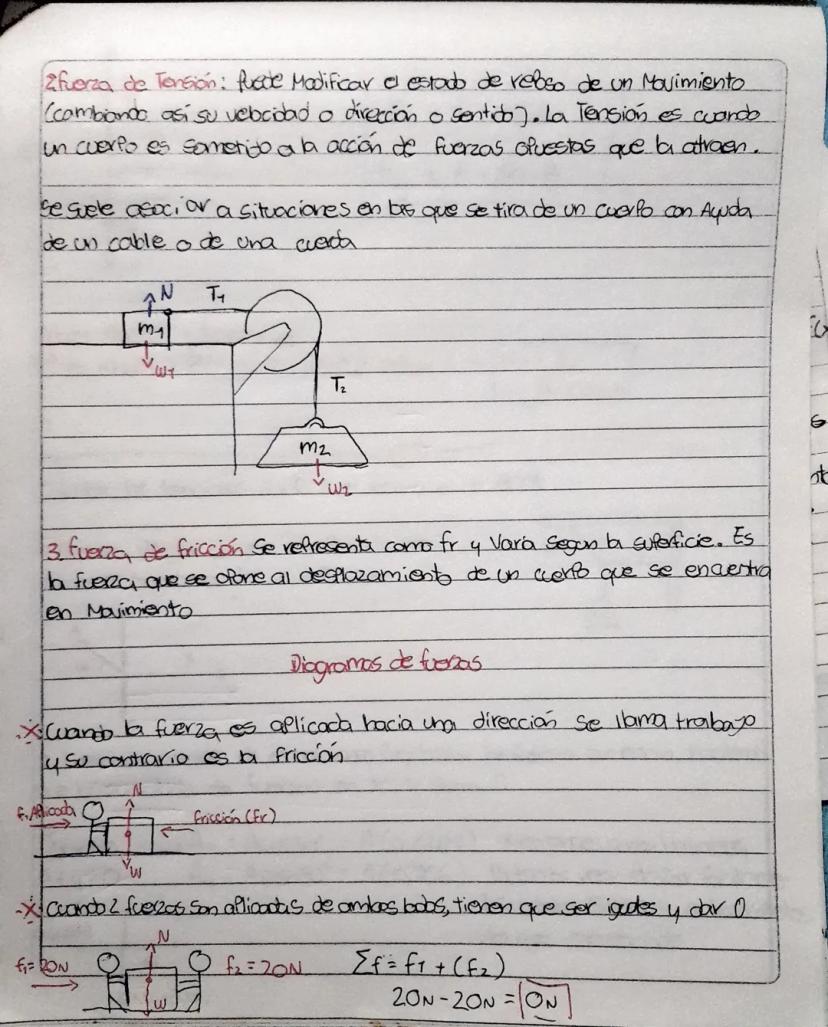 2 fuerza de Tensión: Puede Modificar el estado de reposo de un Movimiento
(cambiando así su velocidad o dirección o sentido). La Tensión es cuando
un cuerpo es sometido a la acción de fuerzas opuestas que la atraen.
se suele asociar a situaciones en las que se tira de un cuerpo con Ayuda
de un cable o de una cuerda
N T1
m1
W1
T2
m2
W2
3. fuerza de fricción Se representa como fr y Varia Segun la superficie. Es
la fuerza que se opone al desplazamiento de un cuerpo que se encuentra
en Movimiento
Diagramas de fuerzas
Cuando la fuerza es aplicada hacia una dirección Se llama trabajo
y su contrario es la fricción
N
f. Aplicada fricción (fr)
W
Cuando 2 fuerzas son aplicadas de ambos lados, tienen que ser iguales y dar 0
N
f1= 20N f2 = 20N Σf = f1 + (f2)
W 20N - 20N = 0N